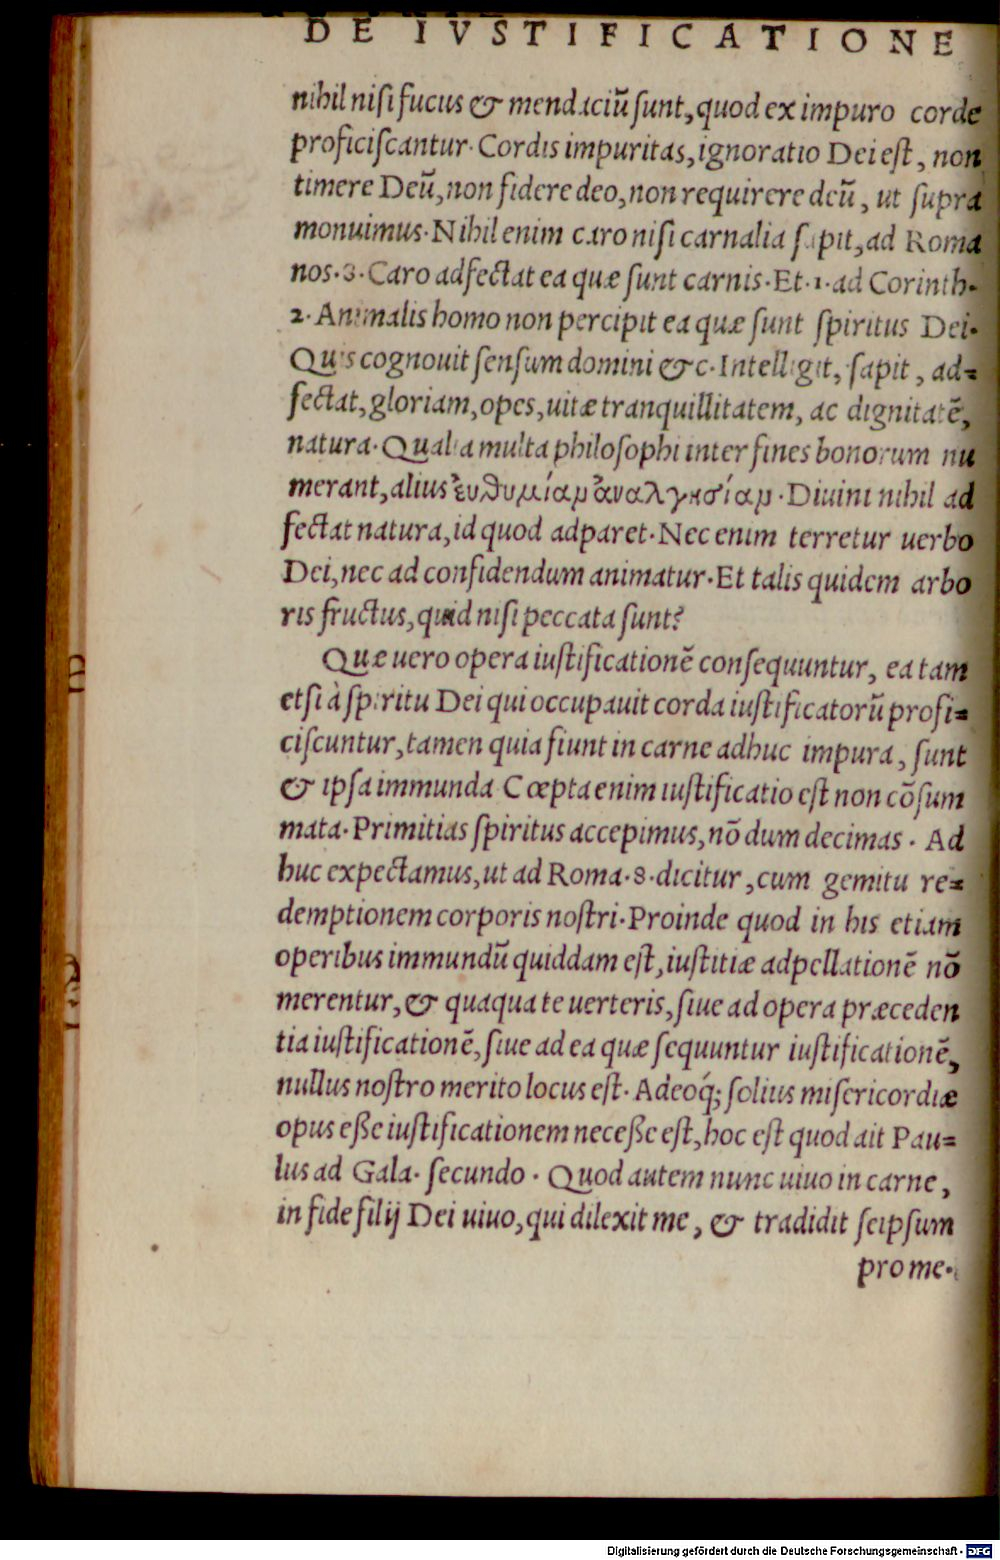 DE IVSTIFICATIONE
nihil nisi fucus & mendaciū sunt, quod ex impuro corde
proficiscantur. Cordis impuritas, ignoratio Dei est, non
timere Deū, non fidere deo, non requirere deū, ut supra
monuimus. Nihil enim caro nisi carnalia sapit, ad Roma
nos. 3. Caro adfectat ea quæ sunt carnis. Et. 1. ad Corinth.
2. Animalis homo non percipit ea quæ sunt spiritus Dei.
Quis cognouit sensum domini & c. Intelligit, sapit, ad=
fectat, gloriam, opes, uitæ tranquillitatem, ac dignitatē,
natura. Qualia multa philosophi inter fines bonorum nu
merant, alius ἐυθυμίαμ ἀναλγησίαμ. Diuini nihil ad
fectat natura, id quod adparet. Nec enim terretur uerbo
Dei, nec ad confidendum animatur. Et talis quidem arbo
ris fructus, quid nisi peccata sunt?
Quæ uero opera iustificationē consequuntur, ea tam
etsi à spiritu Dei qui occupauit corda iustificatorū profi=
ciscuntur, tamen quia fiunt in carne adhuc impura, sunt
& ipsa immunda Cœpta enim iustificatio est non cōsum
mata. Primitias spiritus accepimus, nō dum decimas. Ad
huc expectamus, ut ad Roma. 8. dicitur, cum gemitu re=
demptionem corporis nostri. Proinde quod in his etiam
operibus immundū quiddam est, iustitiæ adpellationē nō
merentur, & quaqua te uerteris, siue ad opera præceden
tia iustificationē, siue ad ea quæ sequuntur iustificationē,
nullus nostro merito locus est. Adeoq́; solius misericordiæ
opus eße iustificationem neceße est, hoc est quod ait Pau=
lus ad Gala. secundo. Quod autem nunc uiuo in carne,
in fide filij Dei uiuo, qui dilexit me, & tradidit seipsum
pro me.
Digitalisierung gefördert durch die Deutsche Forschungsgemeinschaft - DFG